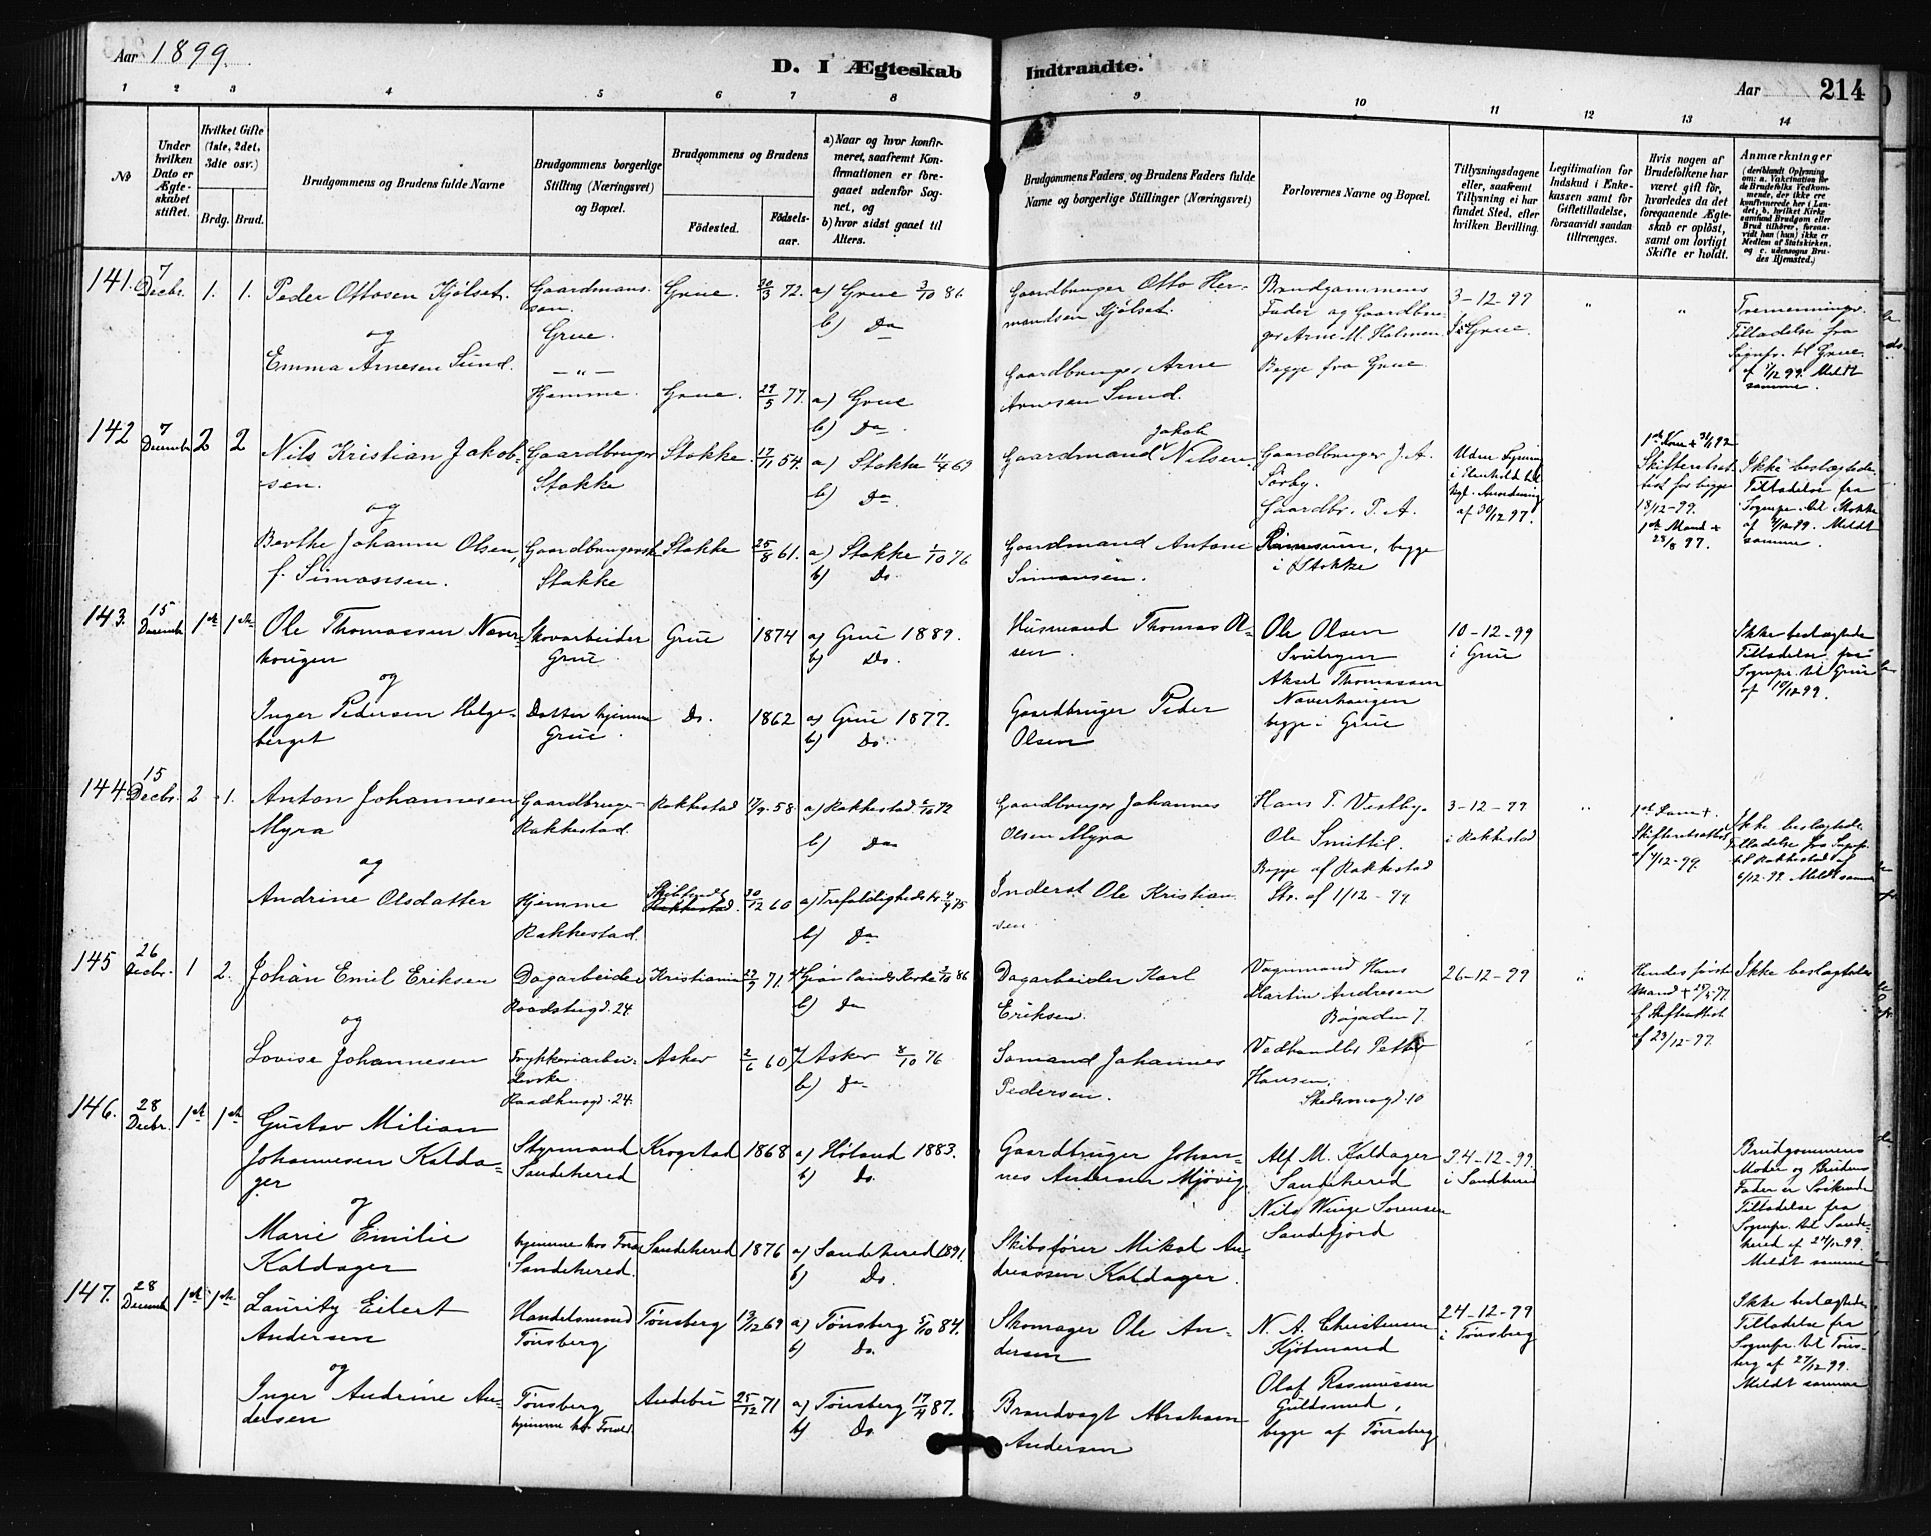 Aar 1899.
D. I Ægteskab
Indtraadte.
Aar
214
1 2 3 4 5 6 7 8 9 10 11 12 13 14
No
Under hvilken Dato er Ægteskabet stiftet.
Hvilket Gifte (1ste, 2det, 3die osv.)
Brdg. Brud.
Brudgommens og Brudens fulde Navne
Brudgommens borgerlige Stilling (Næringsvei) og Bopæl.
Brudgommens og Brudens
Födested.
Födselsaar.
a) Naar og hvor konfirmeret, saafremt Konfirmationen er foregaaet udenfor Sognet, og
b) hvor sidst gaaet til Alters.
Brudgommens Faders, og Brudens Faders fulde Navne og borgerlige Stillinger (Næringsvei)
Forlovernes Navne og Bopæl.
Tillysningsdagene eller, saafremt Tillysning ei har fundet Sted, efter hvilken Bevilling.
Legitimation for Indskud i Enkekassen samt for Giftetilladelse, forsaavidt saadan tiltrænges.
Hvis nogen af Brudefolkene har været gift för, hvorledes da det foregaaende Ægteskab er oplöst, samt om lovligt Skifte er holdt.
Anmærkninger
(deriblandt Oplysning om: a. Vakcination for de Brudefolks Vedkommende, der ikke ere konfirmerede her i Landet; b. hvilket Kirkesamfund Brudgom eller Brud tilhörer, forsaavidt han (hun) ikke er Medlem af Statskirken, og c. udensogns Brudes Hjemsted.)
141. 7 Decbr. 1. 1. Peder Ottosen Kjølset.
og
Emma Arnesen Sund.
Gaardmansson.
Grue.
— " —
Hjemme.
Grue. 30/3 72. a) Grue 3/10 86.
b) Da
Grue. 29/5 77. a) Grue
b) Da.
Gaardbruger Otto Hermandsen Kjølset.
Gaardbruger Arne Arnesen Sund.
Brudgommens Fader og Gaardbruger Arne M. Holmen
Begge fra Grue.
3-12-99
i Grue.
" "
Tremenninger.
Tilladelse fra
Sognepr. til Grue
af 7/12 99. Meldt
samme.
142 7 December 2 2 Nils Kristian Jakobsen.
og
Berthe Johanne Olsen,
f. Simonsen.
Gaardbruger
Stokke
Stokke. 17/11 54. a) Stokke 11/4 69
b) Da.
Stokke
Stokke 25/8 61. a) Stokke 1/10 76
b) Do.
Gaardmand Jakob Nilsen
Gaardmand Antoni
Simonsen.
Gaardbruger J. A.
Sørby.
Gaardbr. P. A.
begge
i Stokke
af 30/12 97.
18/12-99.
1ste Mand +
28/8 97.
Ikke beslægtede.
Tilladelse fra
Sognepr. til Stokke
Meldt
samme.
143. 15 December 1ste 1ste Ole Thomassen Naverhougen
og
Inger Pedersen Helgeberget
Skovarbeider
Grue.
Datter hjemme
Grue.
Grue 1874 a) Grue 1889.
b) Do.
Do. 1862 a) Grue 1877.
b) Do.
Husmand Thomas Olsen.
Gaardbruger Peder
Olsen
Ole Olsen
Aksel Thomassen
Naverhaugen
begge i Grue
10-12-99
i Grue
Ikke beslægtede
Tilladelse fra
Sognepr. til Grue
af 10/12 99.
144. 15 Decbr. 2 1. Anton Johannesen
Myra
og
Andrine Olsdatter
Gaardbruger
Rakkestad.
Hjemme
Rakkestad.
Rakkestad 58 a) Rakkestad 72
b) Da
Rakkestad. 30/12 60 a) Trefoldigheds K. 4/4 75
b) Da
Gaardbruger Johannes
Olsen Myra
Inderst Ole Kristiansen
Hans T. Vestby.
Ole Smittil.
Begge af Rakkestad
Str. af 1/12-99
3-12-99
i Rakkestad
"
Skifteretsattest
af 7/12-99.
Ikke beslægtede
Tilladelse fra Sognepr.
til Rakkestad af
6/12-99. Meldt samme
145 26 Decbr. 1 2. Johan Emil Eriksen
og
Lovise Johannesen
Dagarbeider
Raadhusgd. 24
Trykkeriarbeiderske
Raadhusgd. 24.
Kristiania 71. Grønlands Kirke 86
b) Da
Asker 2/6 60 a) Asker 8/10 76
b) Da
Dagarbeider Karl
Eriksen.
Sømand Johannes
Pedersen.
Vognmand Hans
Martin Andresen
Bøgaden 7.
Vedhandler Petter
Hansen.
Skedsmogd. 10
26-12-99
"
Hendes første
Mand +
af 23/12-99.
Ikke beslægtede
146. 28 Decbr. 1ste 1ste Gustav Milian
Johannesen Kaldager
og
Marie Emilie
Kaldager
Styrmand
Sandeherred
hjemme hos Foræ.
Sandeherred.
Krogstad 1868 a) Høland 1883.
b) Do.
Sandeherred 1876 a) Sandeherred 1891.
b) Do.
Gaardbruger Johannes Andersen Mjøvig
Skibsfører Mikal Andreassen Kaldager.
Alf M. Kaldager
Sandeherred
Nils Winge Sorensen
Sandefjord
24-12-99.
i Sandeherred
Brudgommens
Moder og Brudens
Fader er Søskende
Tilladelse fra
Sognepr. til Sandeherred af 27/12 99.
Meldt samme
147. 28 December 1ste 1ste Lauritz Eilert
Andersen
og
Inger Andrine Andersen
Handelsmand
Tønsberg
Tønsberg
hjemme hos Foræld.
Tønsberg 13/12 69 a) Tønsberg 5/10 84.
b) Do.
Andebu 25/12 71 a) Tønsberg 17/4 87.
b) Do.
Skomager Ole Andersen
Brandvagt Abraham
Andersen
N. A. Christensen
Kjøbmand
Olaf Rasmussen
Guldsmed,
begge af Tønsberg
24-12-99
i Tønsberg
Ikke beslægtede.
Tilladelse fra
Sognepr. til Tønsberg af 27/12 99.
Meldt samme